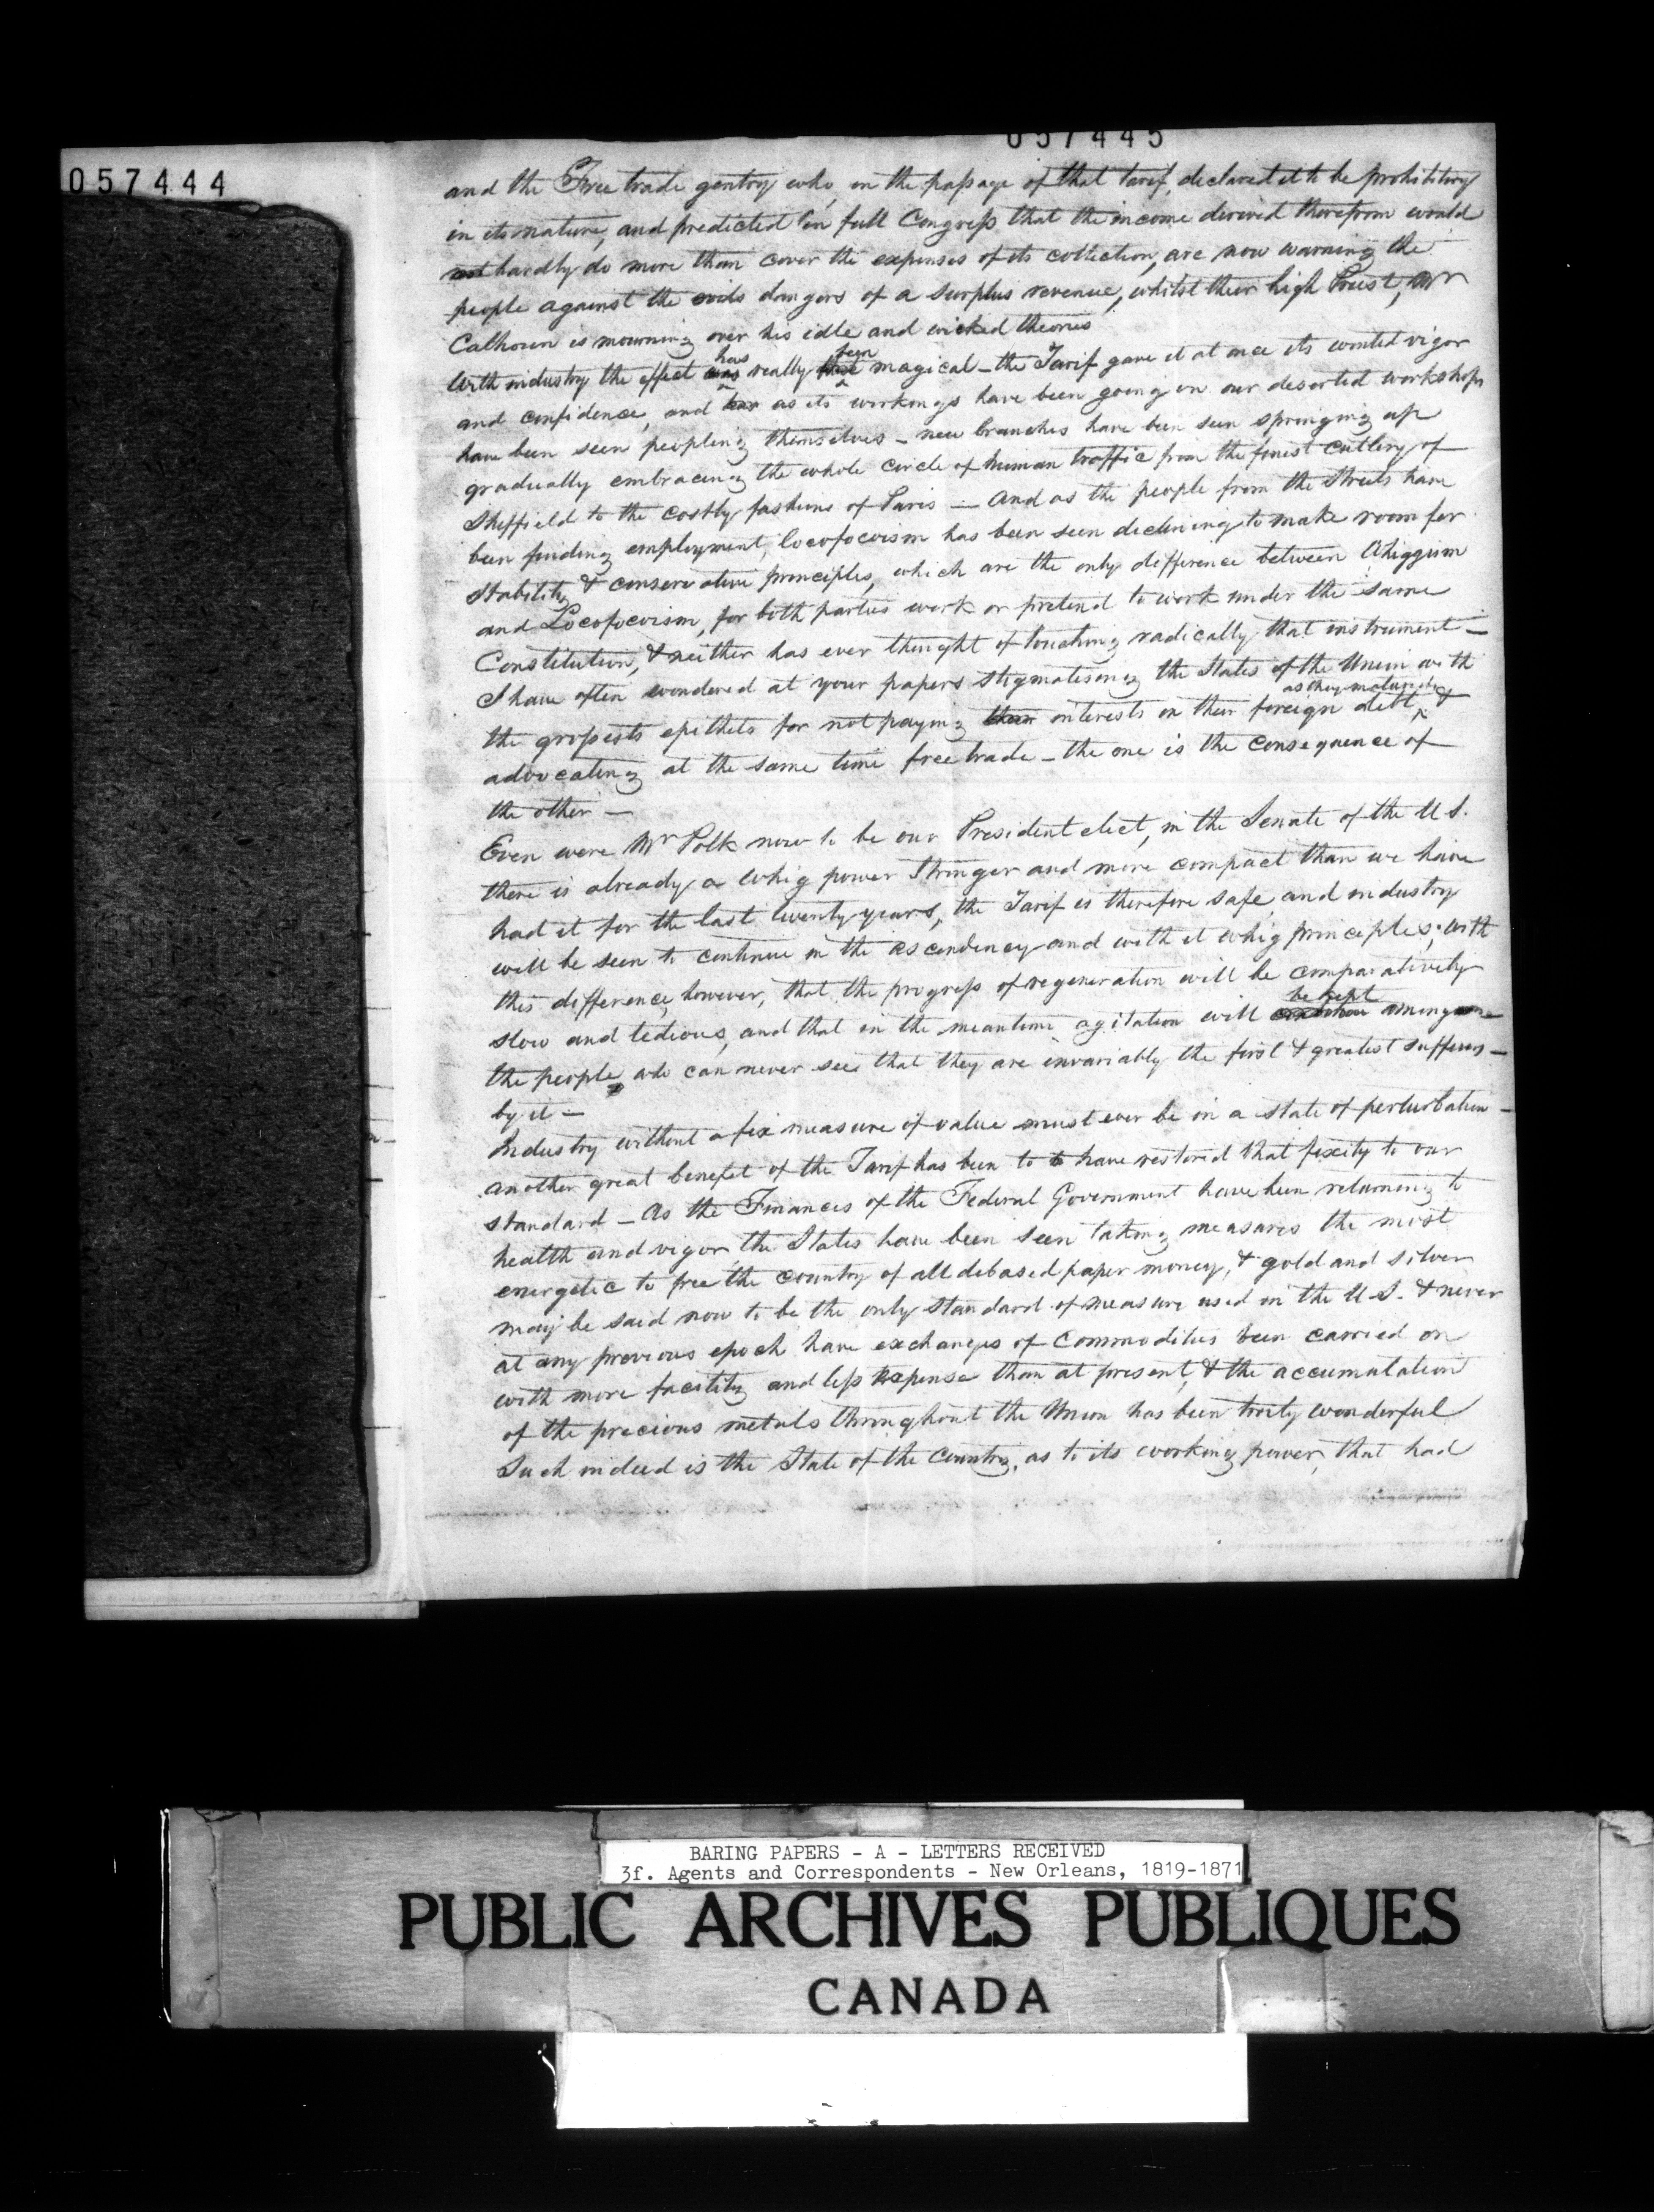 057444
057445
and the Free trade gentry who, on the passage of that tarif, declared it to be prohibitory
in its nature, and predicted in full Congress that the income derived therefrom would
not hardly do more than cover the expenses of its collection, are now warning the
people against the evils dangers of a surplus revenue, whilst their high Priest, Mr
Calhoun is mourning over his idle and wicked theories
With industry the effect was has really been magical – the Tarif gave it at once its wonted vigor
and confidence, and as its workings have been going on our deserted workshops
have been seen peopling themselves – new branches have been seen springing up
gradually embracing the whole circle of human traffic from the finest cutlery of
Sheffield to the costly fashions of Paris – And as the people from the Streets have
been finding employment, locofocoism has been seen declining to make room for
stability & conservative principles, which are the only difference between Whiggism
and Locofocoism, for both parties work or pretend to work under the same
Constitution, & neither has ever thought of touching radically that instrument –
I have often wondered at your papers stigmatising the States of the Union with
the grossests epithets for not paying their interests on their foreign debt, as they matured, &
advocating at the same time free trade – the one is the consequence of
the other –
Even were Mr Polk now to be our President elect, in the Senate of the U S.
there is already a Whig power Stronger and more compact than we have
had it for the last twenty years, the Tarif is therefore safe, and industry
will be seen to continue in the ascendency and with it whig principles; with
this difference, however, that the progress of regeneration will be comparatively
slow and tedious, and that in the meantime agitation will be kept among
the people, who can never see that they are invariably the first & greatest sufferers –
by it –
Industry without a fix measure of value must ever be in a state of perturbation –
another great benefit of the Tarif has been to to have restored that fixity to our
standard – As the Finances of the Federal Government have been returning to
health and vigor, the States have been seen taking measures the most
energetic to free the country of all debased paper money, & gold and silver
may be said now to be the only standard of measure used in the U S. & never
at any previous epoch have exchanges of Commodities been carried on
with more facility and less expense than at present, & the accumulation
of the precious metals throughout the Union has been truly wonderful
Such indeed is the State of the Country, as to its working power, that had
BARING PAPERS - A - LETTERS RECEIVED
3f. Agents and Correspondents - New Orleans, 1819-1871
PUBLIC ARCHIVES PUBLIQUES
CANADA